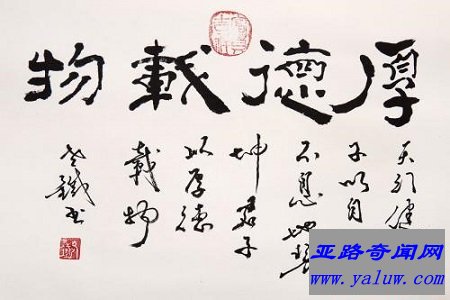 厚德載物
天行健
子以自
不息地勢
坤君子
以厚德
載物
老鐵书
亚路奇闻网
www.yaluw.com